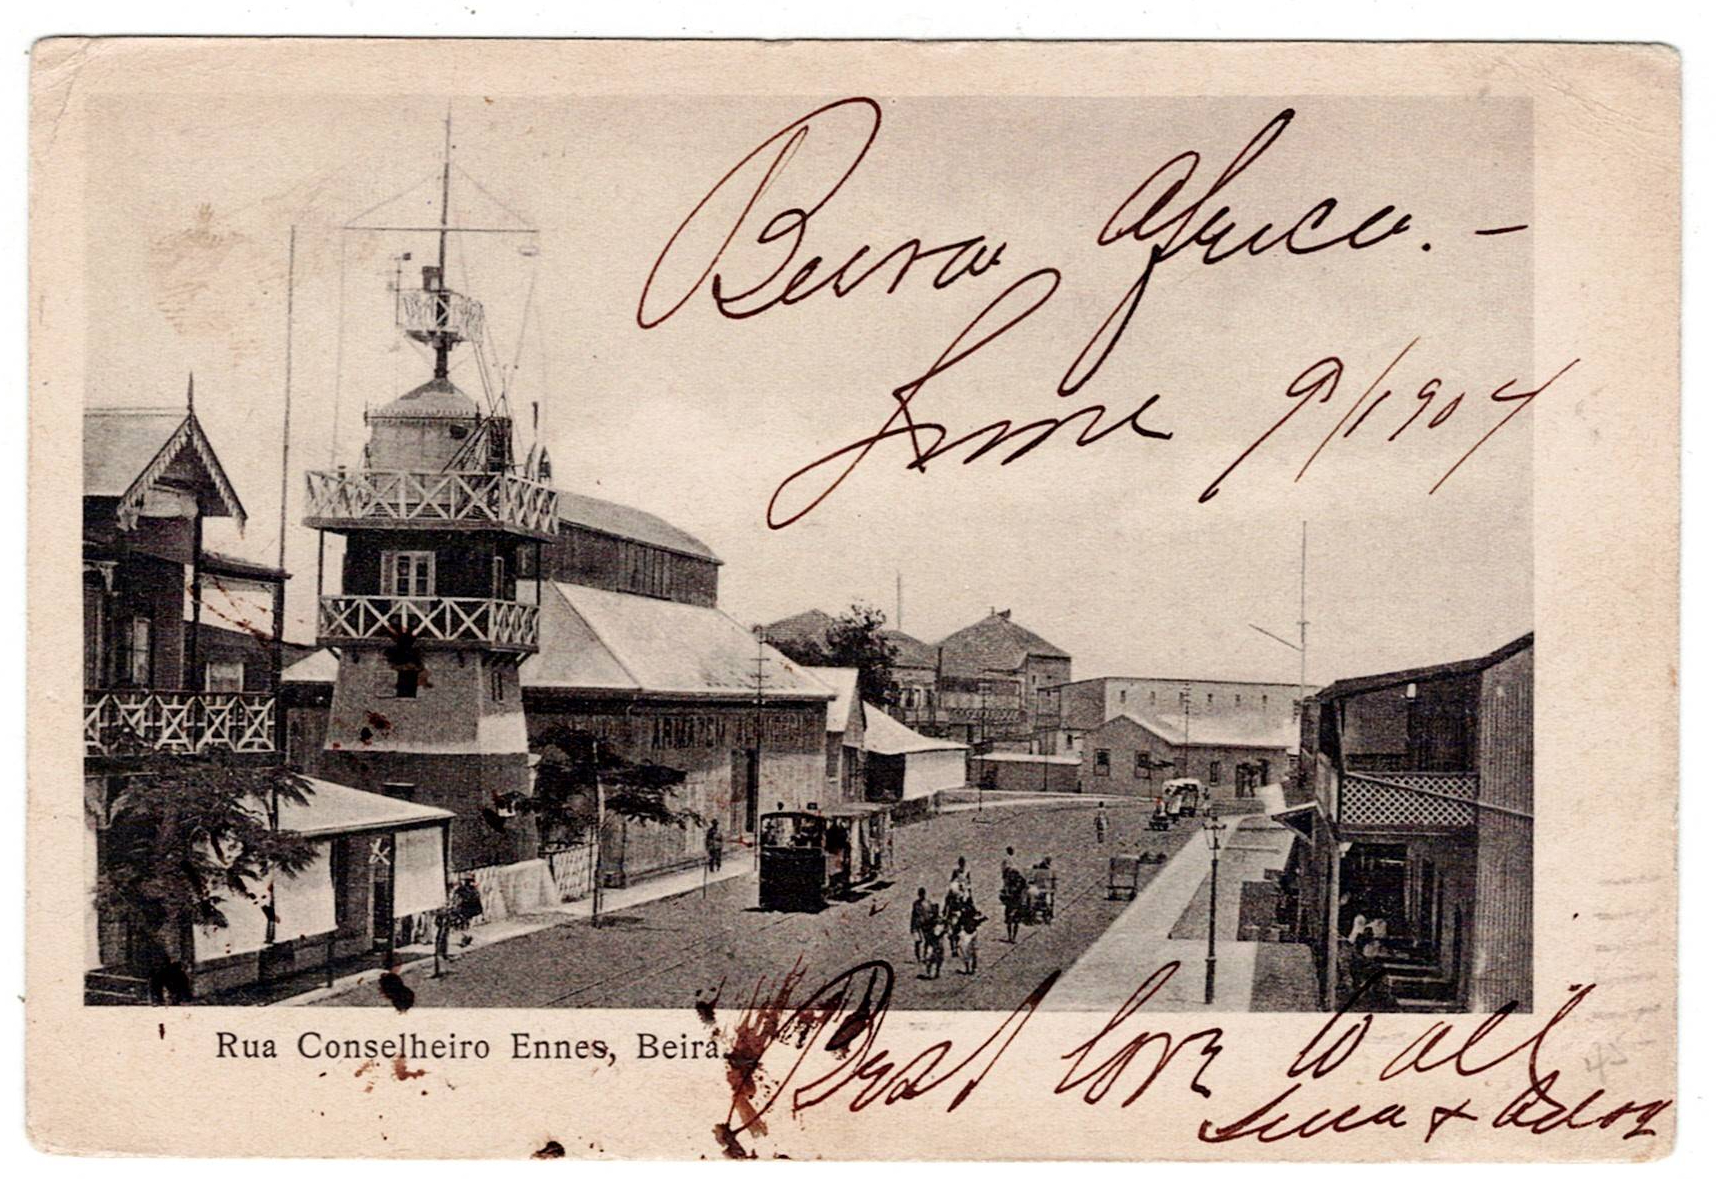 Beira Africa. —
June 9/1904
ARMAZEM
Rua Conselheiro Ennes, Beira
Best love to all